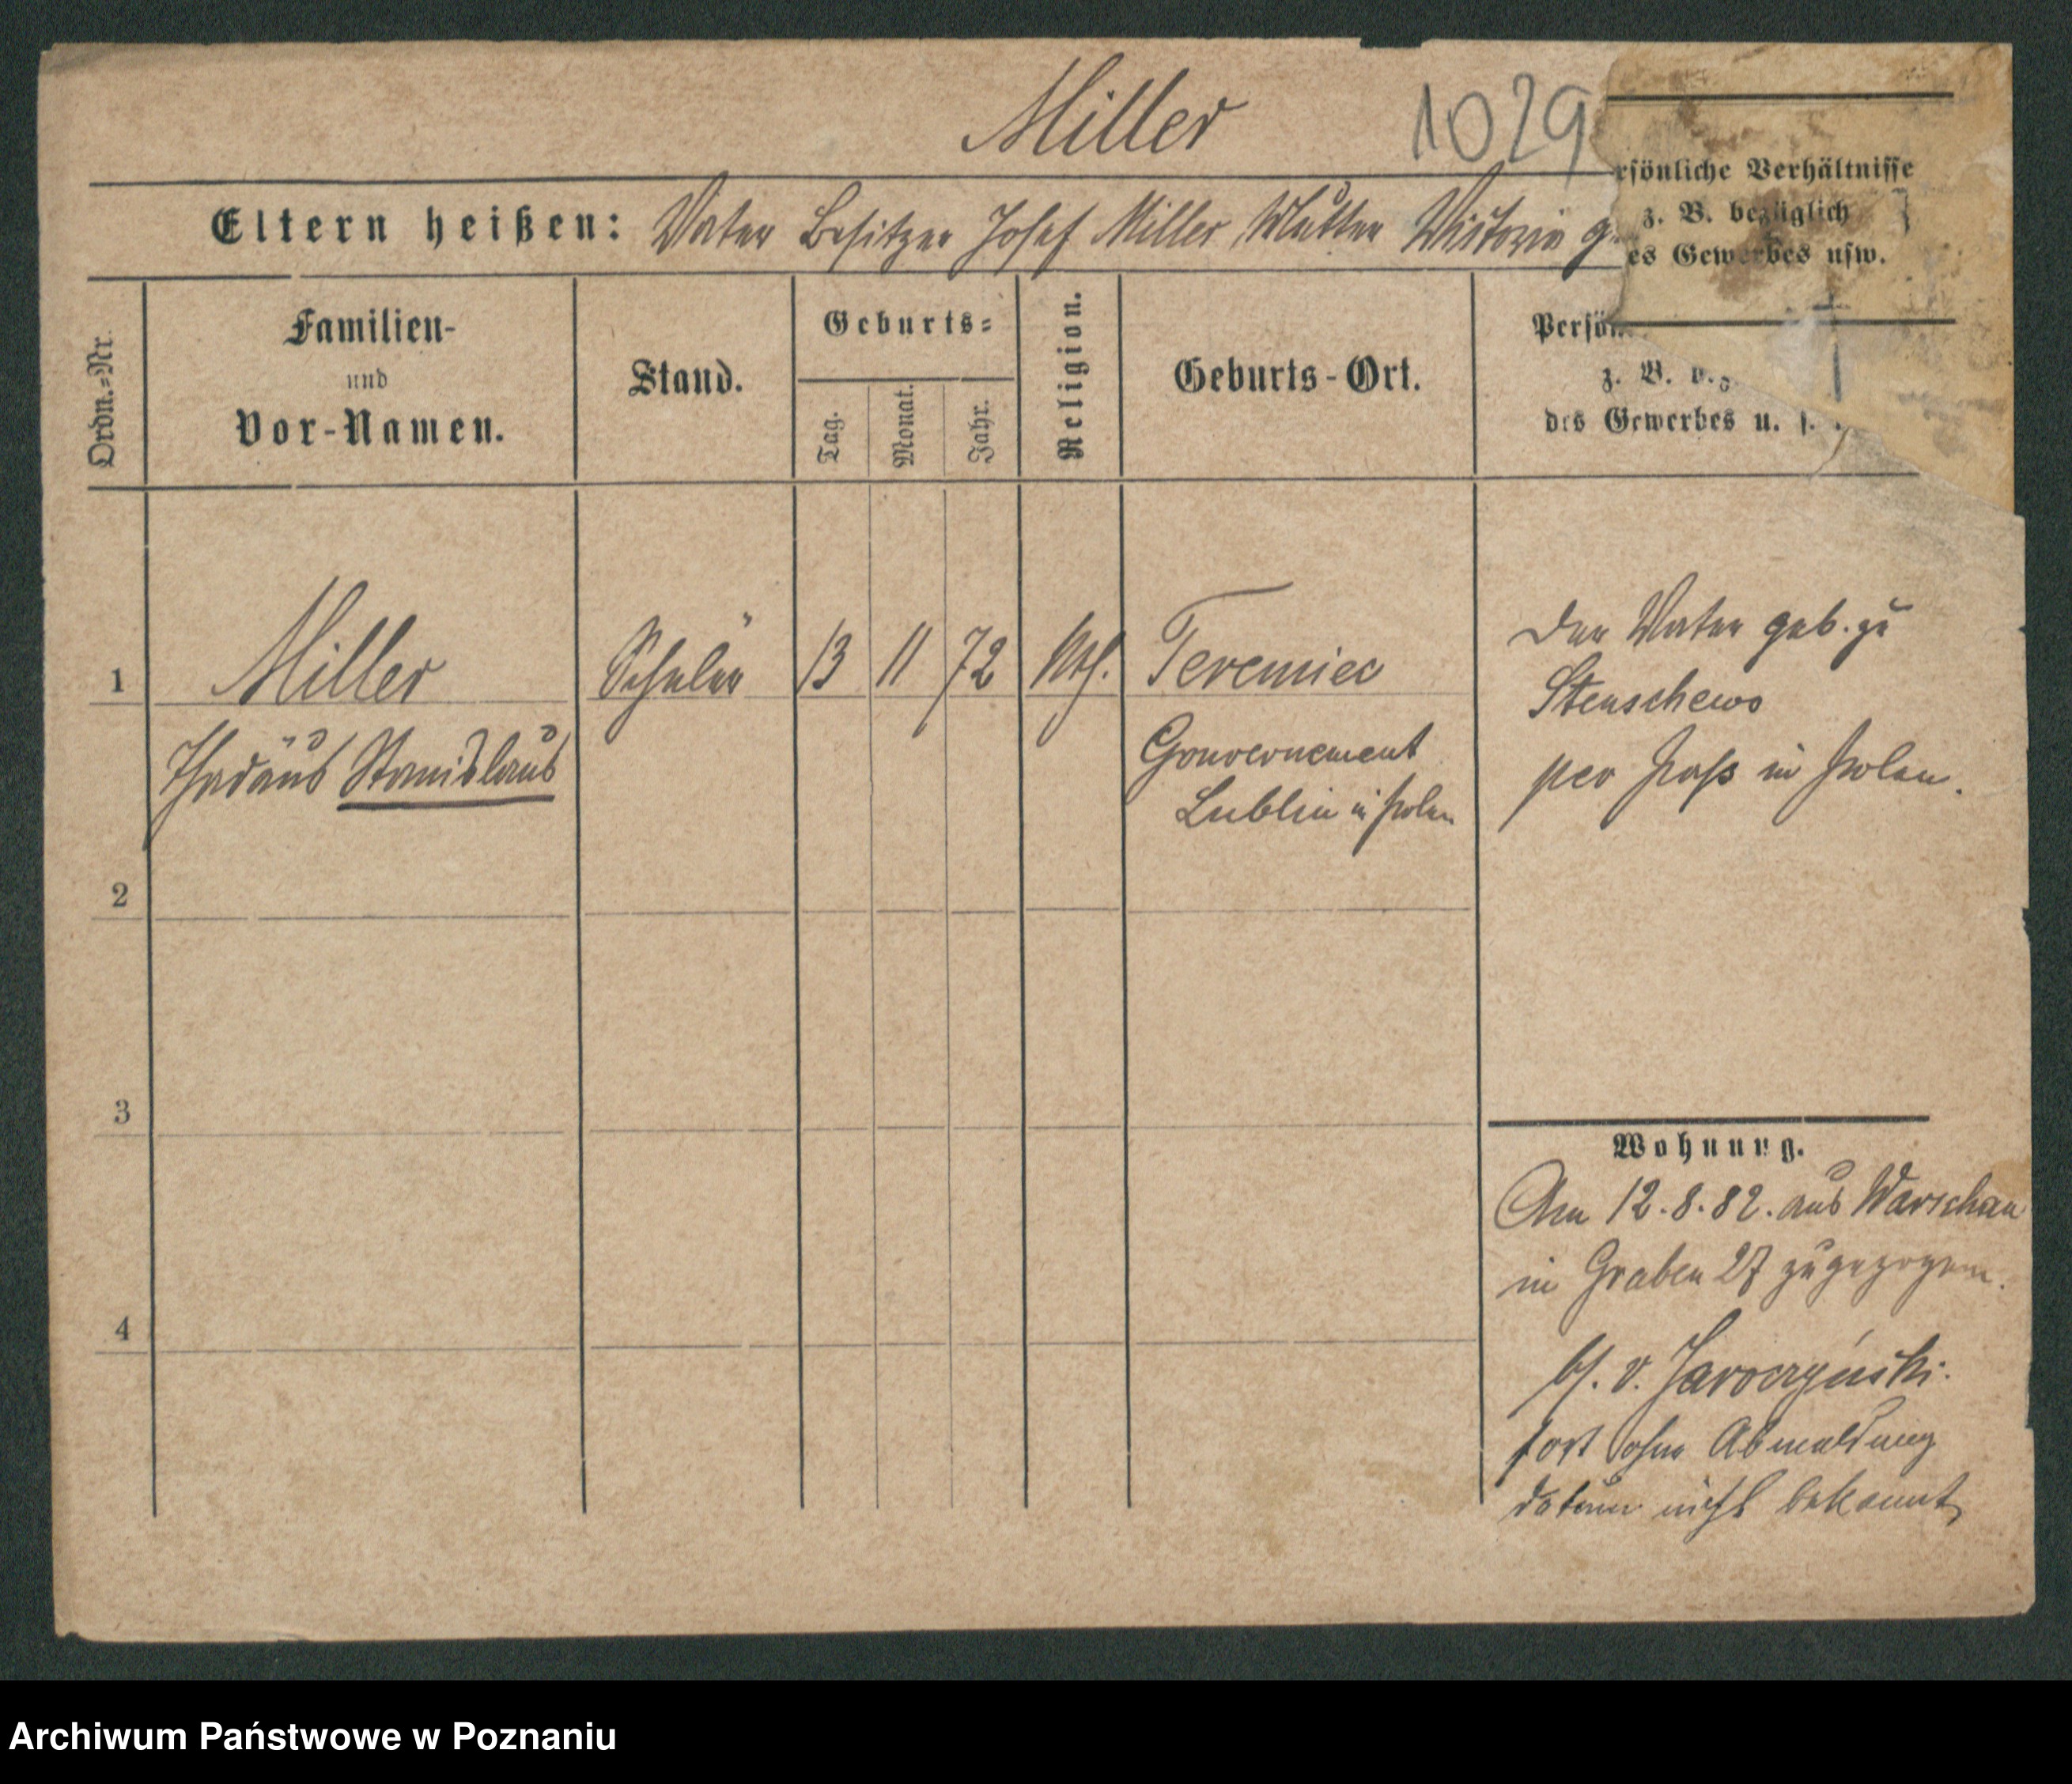 Miller 1029
Eltern heißen: Vater Besitzer Josef Miller Mutter Victoria g
rsönliche Verhältnisse
z. B. bezüglich
es Gewerbes usw.
Ordn.=Nr.
Familien-
und
Vor-Namen.
Stand.
Geburts=
Tag.
Monat.
Jahr.
Religion.
Geburts-Ort.
Persön
z. B. b.z
des Gewerbes u. s.
1 Miller Schüler 13 11 72 kth. Teremiec
Thadäus Stanislaus
Gouvernement
Lublin in Polen
Der Vater geb. zu
Stenschewo
per Pass in Polen.
2
3
4
Wohnung.
Am 12.8.82. aus Warschau
in Graben 27 zugezogen.
bf. v. Jaroczyński.
fort ohne Abmeldung
datum nicht bekannt
Archiwum Państwowe w Poznaniu